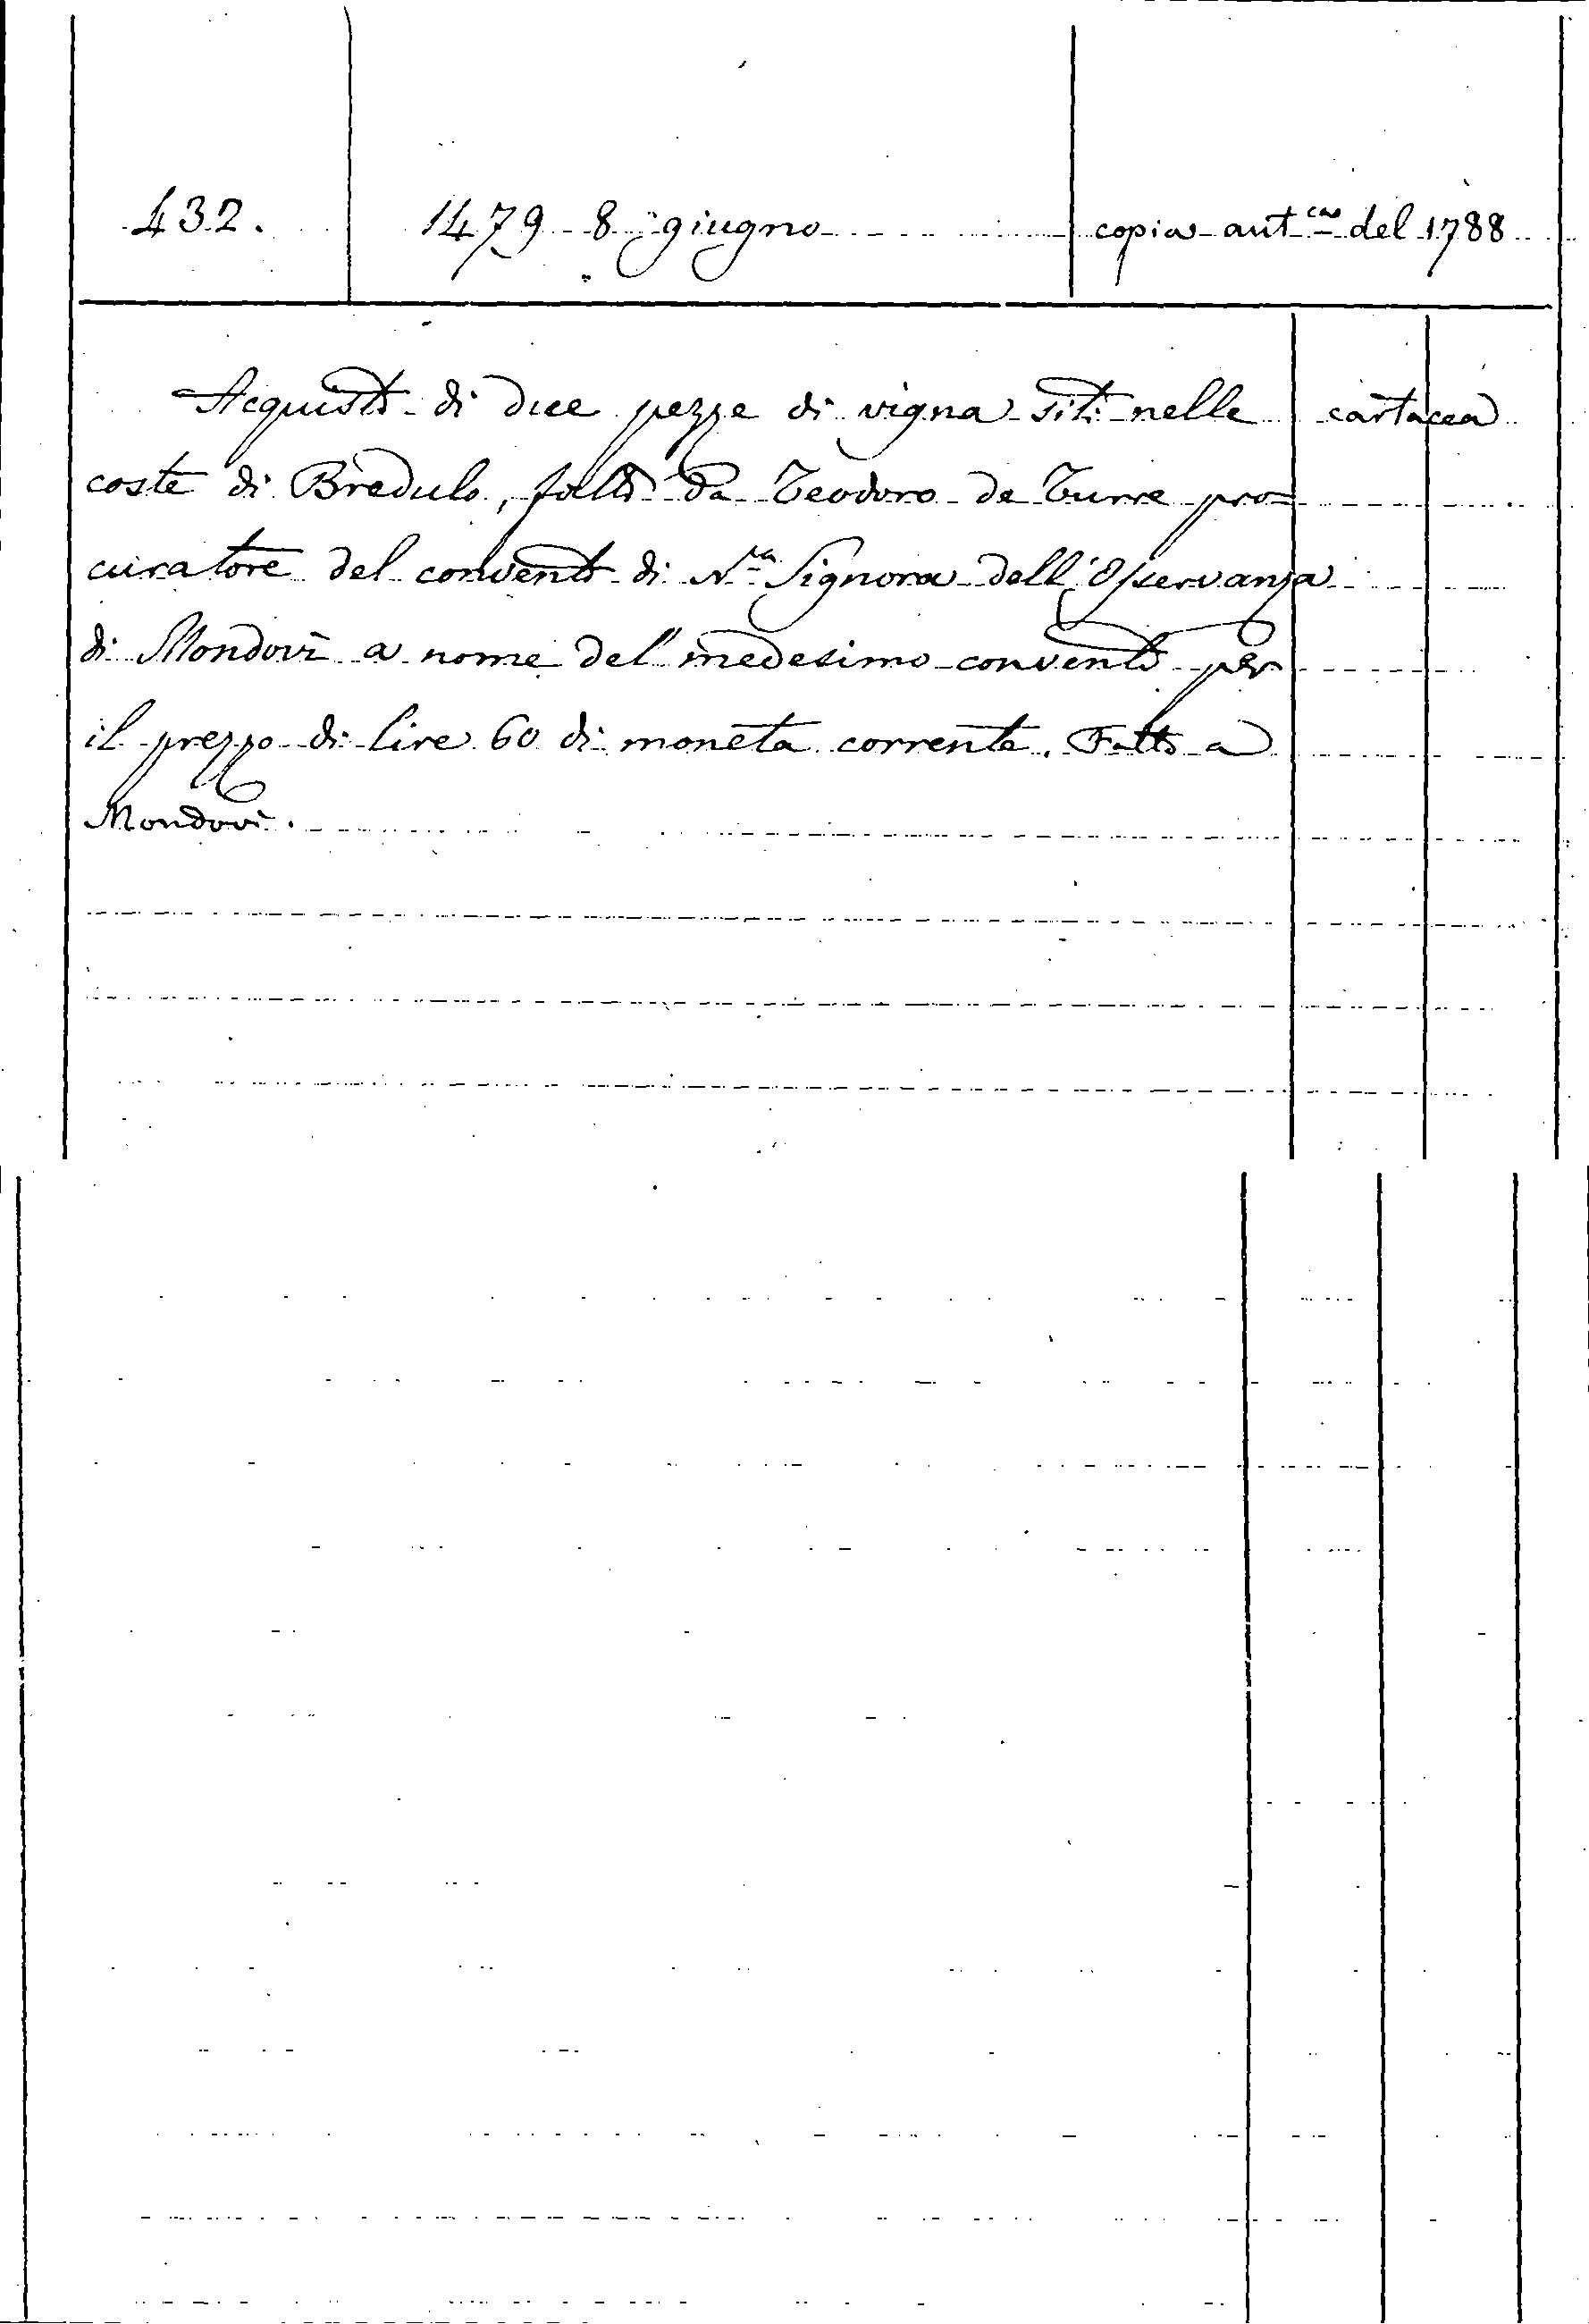 432. 1479 8 giugno copia aut.ca del 1788
Acquisto di due pezze di vigna siti nelle cartacea
coste di Bredulo, fatto da Teodoro de Turre pro=
curatore del convento di N.ra Signora dell'Osservanza
di Mondovì a nome del medesimo convento per
il prezzo di lire 60 di moneta corrente. Fatto a
Mondovì.